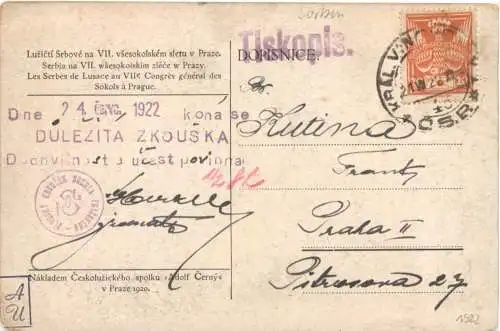 Sorben
Lužičtí Srbové na VII. všesokolském sletu v Praze.
Serbja na VII. wšesokolskim zlěće w Prazy.
Les Serbes de Lusace au VIIe Congrès général des
Sokols à Prague.
Tiskopis.
DOPISNICE.
KRÁL. VINOHRADY
Č.S.R.
Dne 24. ČERVNA 1922 koná se
DŮLEŽITÁ ZKOUŠKA
Dochvilnost a účast povinna
Kutina
Frant.
Praha II
Pitrosova 27
Nákladem Českolužického spolku »Adolf Černý«
v Praze 1920.
A
U
1922